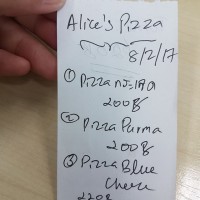 Alice's Pizza
8/2/17
① Pizza
200฿
② Pizza Parma
200฿
③ Pizza Blue
Cheese
220฿